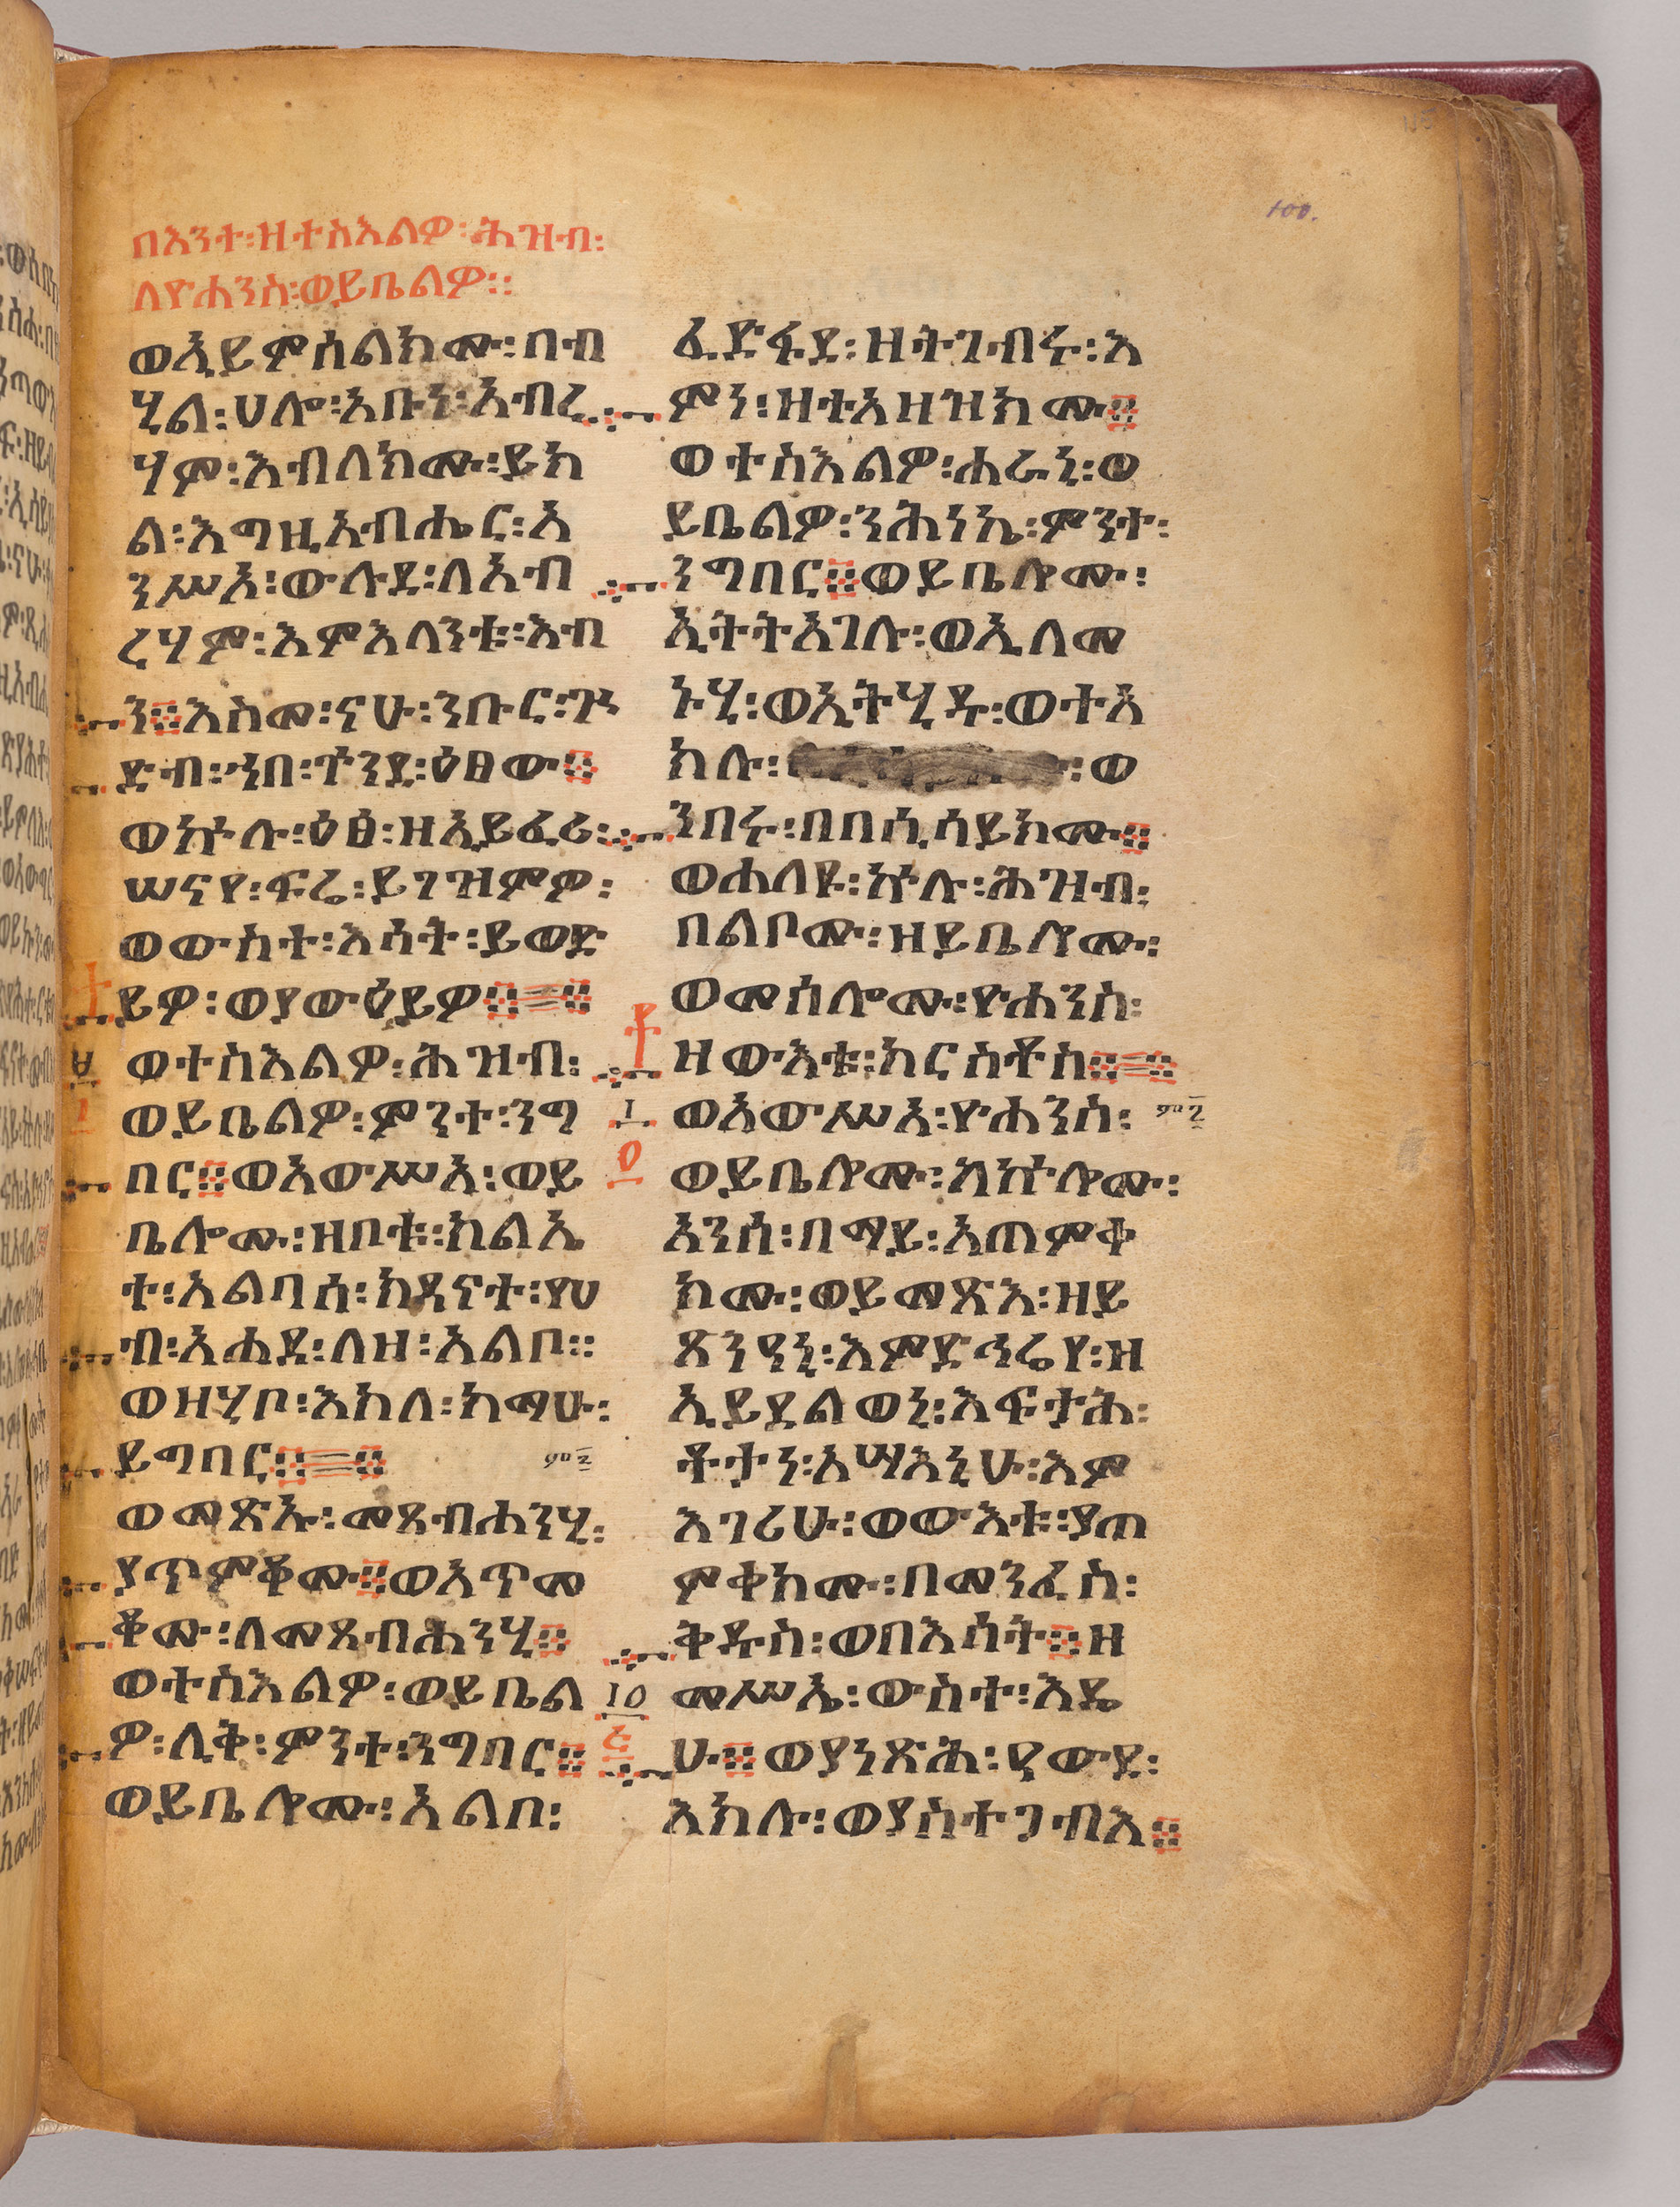 በእንተ፡ዘተስእልዎ፡ሕዝብ፡
ለዮሐንስ፡ወይቤልዎ፡፡
ወኢይምሰልክሙ፡በብ
ሂል፡ሀሎ፡አቡነ፡አብረ
ሃም፡እብለክሙ፡ይክ
ል፡እግዚአብሔር፡አ
ንሥአ፡ውሉደ፡ለአብ
ረሃም፡እምእላንቱ፡እብ
ን፨እስመ፡ናሁ፡ንቡር፡ጕ
ድብ፡ኀበ፡ጕንደ፡ዕፀው፨
ወኵሉ፡ዕፅ፡ዘኢይፈሪ፡
ሠናየ፡ፍሬ፡ይገዝምዎ፡
ወውስተ፡እሳት፡ይወድ
ይዎ፡ወያውዕይዎ፨=፨
ወተስእልዎ፡ሕዝብ፡
ወይቤልዎ፡ምንተ፡ንግ
በር፨ወአውሥአ፡ወይ
ቤሎሙ፡ዘቦቱ፡ክልኤ
ተ፡አልባሰ፡ክዳናት፡የሀ
ብ፡አሐደ፡ለዘ፡አልቦ፡፡
ወዘሂቦ፡እክለ፡ከማሁ፡
ይግበር፨=፨
ወመጽኡ፡መጸብሐንሂ፡
ያጥምቆሙ፨ወአጥመ
ቆሙ፡ለመጸብሕንሂ፨
ወተስእልዎ፡ወይቤል
ዎ፡ሊቅ፡ምንተ፡ንግበር፨
ወይቤሎሙ፡አልቦ፡
ፈድፋደ፡ዘትገብሩ፡እ
ምነ፡ዘተአዘዝክሙ፨
ወተስእልዎ፡ሐራኒ፡ወ
ይቤልዎ፡ንሕነኬ፡ምንተ፡
ንግበር፨ወይቤሎሙ፡
ኢትትአገሉ፡ወኢለመ
ኑሂ፡ወኢትሂዱ፡ወተአ
ክሉ፡ ፡ወ
ንበሩ፡በበሲሳይክሙ፨
ወሐለዩ፡ኵሉ፡ሕዝብ፡
በልቦሙ፡ዘይቤሎሙ፡
ወመሰሎሙ፡ዮሐንስ፡
ዘውእቱ፡ክርስቶስ፨=፨
ወአውሥአ፡ዮሐንስ፡
ወይቤሎሙ፡ለኵሎሙ፡
አንሰ፡በማይ፡አጠምቀ
ክሙ፡ወይመጽእ፡ዘይ
ጸንዓኒ፡እምድኅሬየ፡ዘ
ኢይደልወኒ፡እፍታሕ፡
ቶታነ፡አሣእኒሁ፡እም
እገሪሁ፡ወውእቱ፡ያጠ
ምቀክሙ፡በመንፈስ፡
ቅዱስ፡ወበእሳት፨ዘ
መሥኤ፡ውስተ፡እዴ
ሁ፨ወያነጽሕ፡ዓውደ፡
እክሉ፡ወያስተጋብእ፨
100.